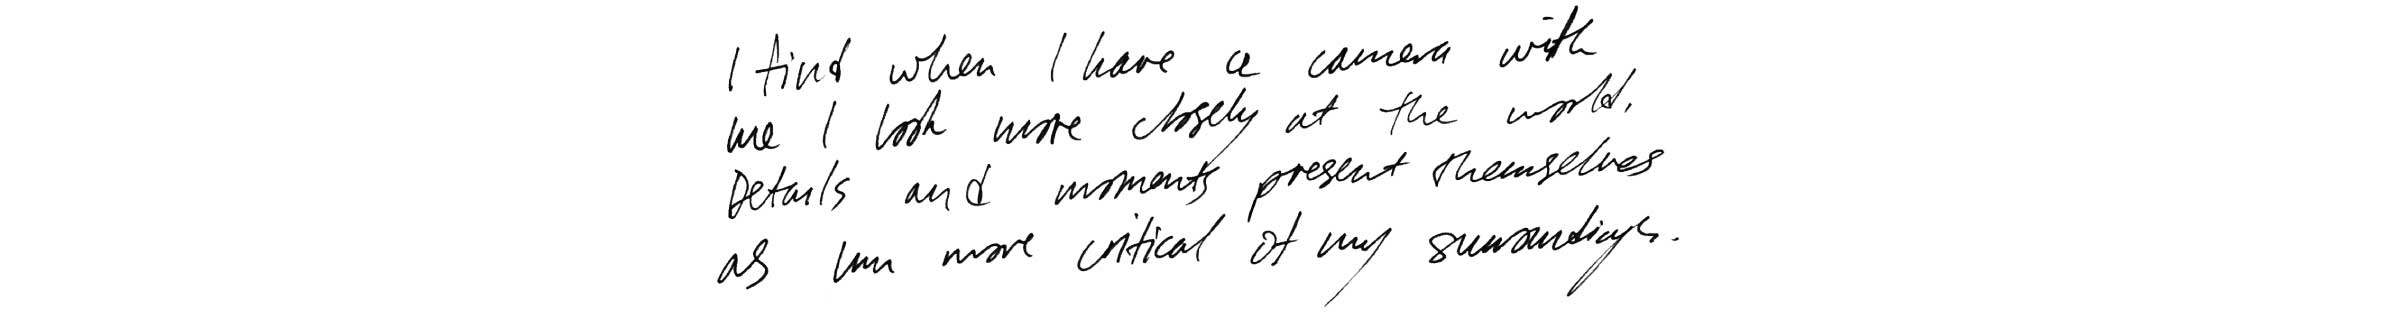 I find when I have a camera with
me I look more closely at the world.
Details and moments present themselves
as I'm more critical of my surroundings.